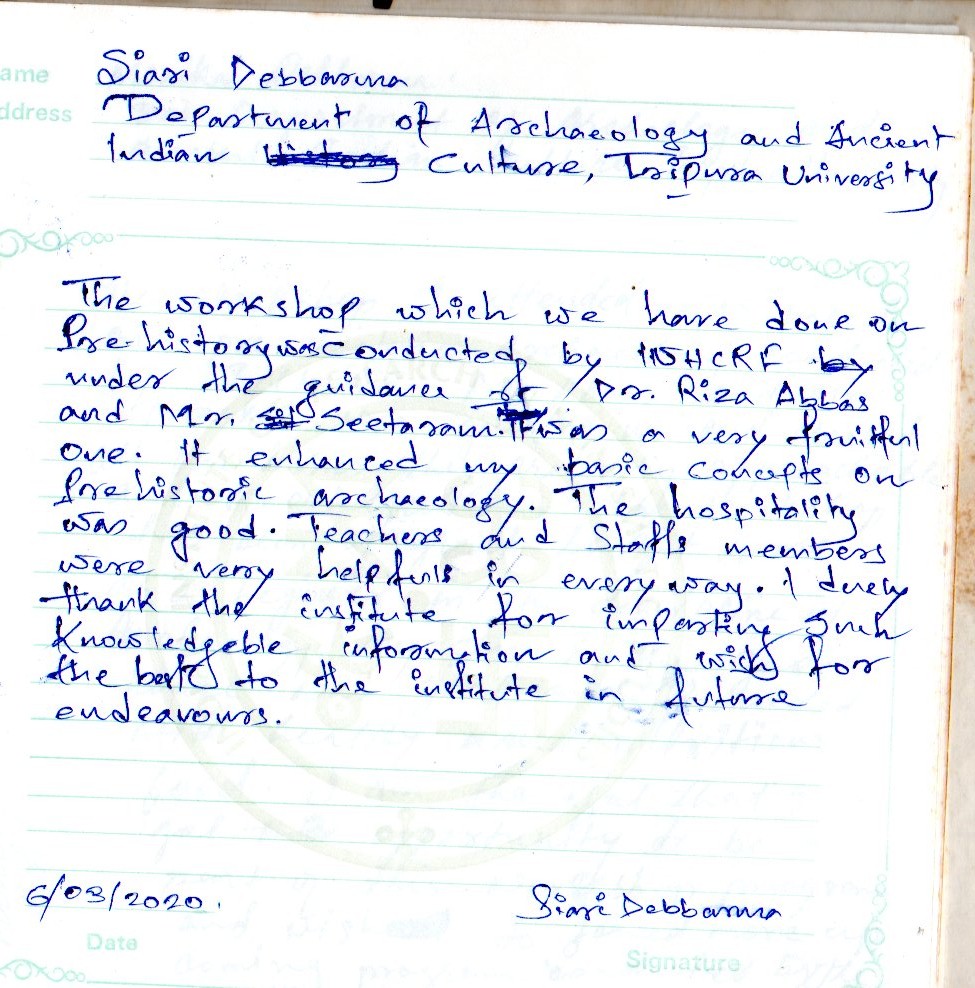 ame Siari Debbarma
ddress Department of Archaeology and Ancient
Indian History Culture, Tripura University
The workshop which we have done on
Pre-history was conducted by IISHCRF by
under the guidance of Dr. Riza Abbas
and Mr. Seetaram. It was a very fruitful
one. It enhanced my basic concepts on
Prehistoric archaeology. The hospitality
was good. Teachers and Staffs members
were very helpfuls in every way. I
thank the institute for imparting such
Knowledgeble information and wish for
the best to the institute in future
endeavours.
6/03/2020.
Siari Debbarma
Date
Signature